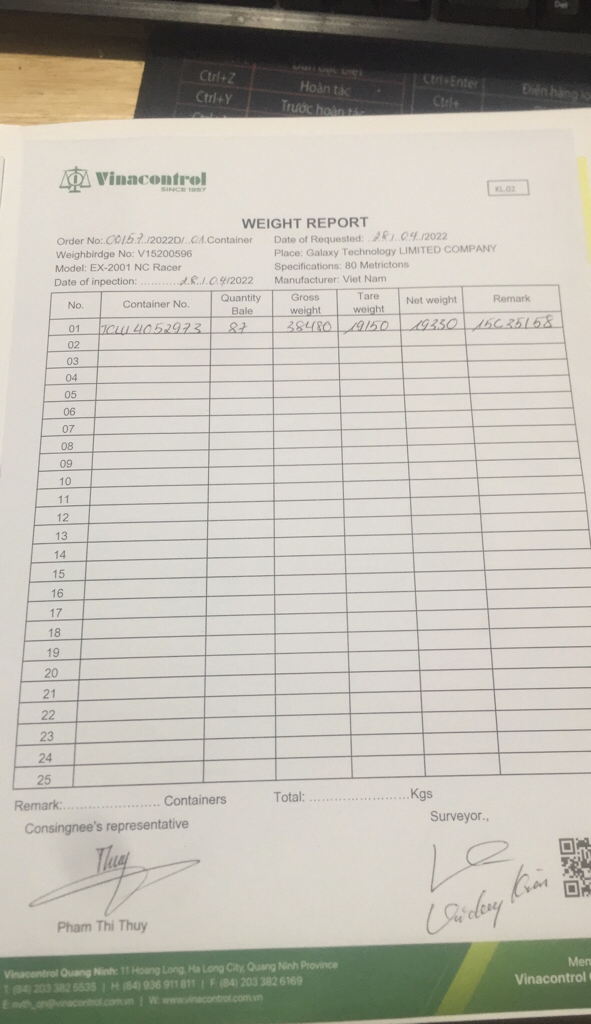 Ctrl+Z Hoàn tác Ctrl+Enter Điền hàng
Ctrl+Y Trước hoàn tác Ctrl+
Vinacontrol
SINCE 1957
KL.02
WEIGHT REPORT
Order No: 00157/2022D/ 01 Container Date of Requested: 28/ 04 /2022
Weighbirdge No: V15200596 Place: Galaxy Technology LIMITED COMPANY
Model: EX-2001 NC Racer Specifications: 80 Metrictons
Date of inpection: 28/ 04/2022 Manufacturer: Viet Nam
No. Container No. Quantity Bale Gross weight Tare weight Net weight Remark
01 TCLU 4052973 87 38480 19150 19330 15C35158
02
03
04
05
06
07
08
09
10
11
12
13
14
15
16
17
18
19
20
21
22
23
24
25
Remark:........................ Containers Total: ........................Kgs
Consingnee's representative Surveyor.,
Thuy
Pham Thi Thuy
Vinacontrol Quang Ninh: 11 Hoang Long, Ha Long City, Quang Ninh Province
T: (84) 203 382 5535 | H: (84) 936 911 811 | F: (84) 203 382 6169
W: www.vinacontrol.com.vn
Vinacontrol